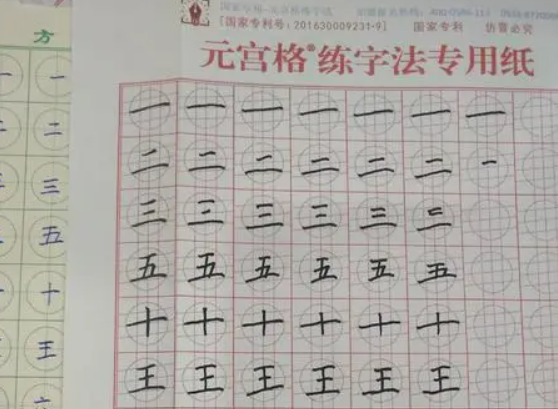 方
[国家专利号：201630009231-9] 国家专利 仿冒必究
元宫格®练字法专用纸
一 一 一 一 一 一 一 一 一
二 二 二 二 二 二 二 一
三 三 三 三 三 三 三
五 五 五 五 五 五 五
十 十 十 十 十 十 十
王 王 王 王 王 王 王